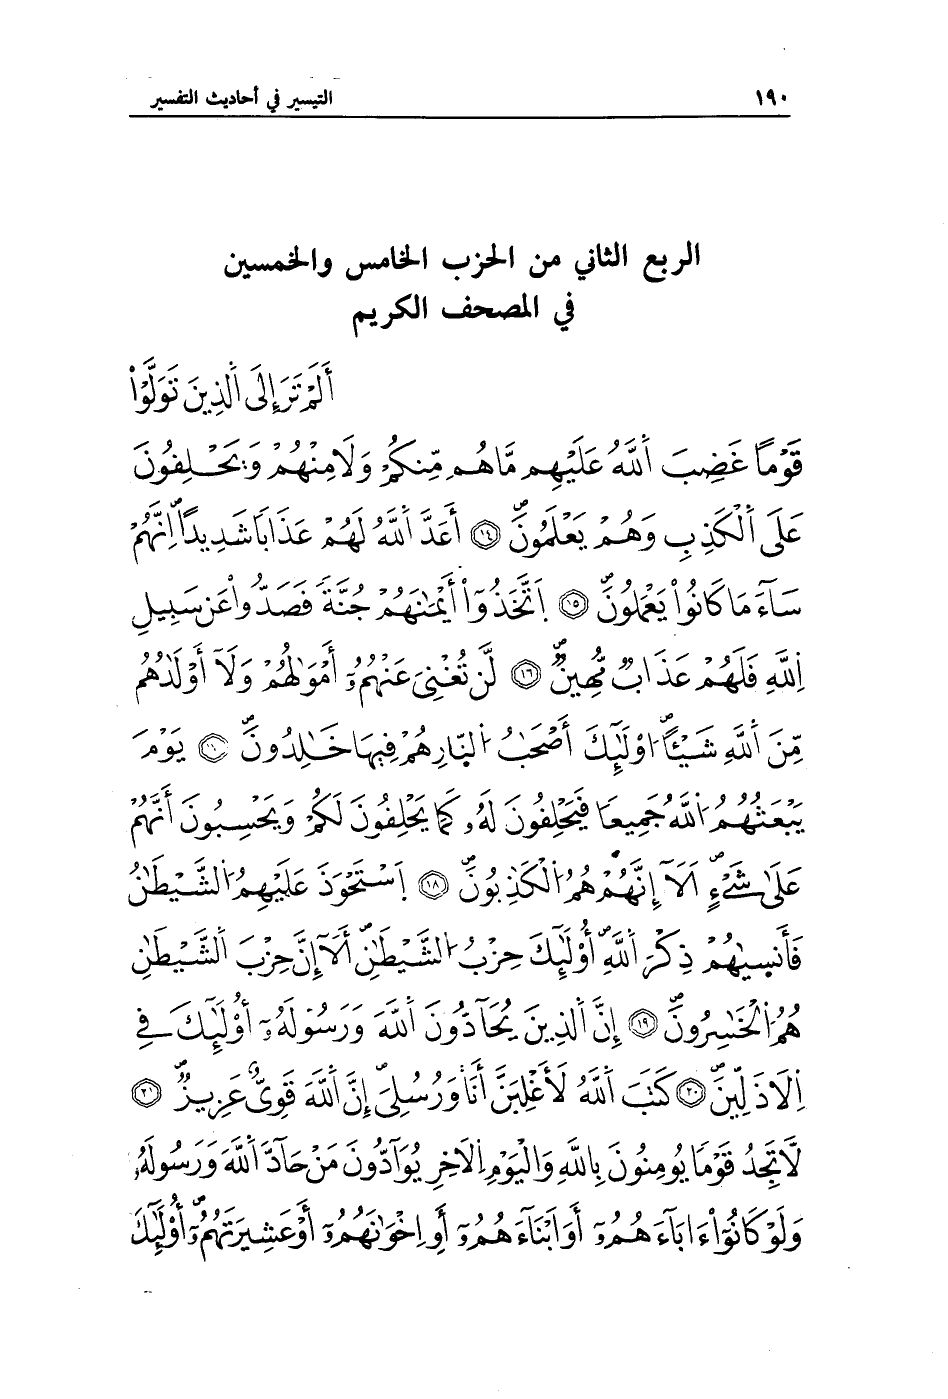 ١٩٠
التيسير في أحاديث التفسير
الربع الثاني من الحزب الخامس والخمسين
في المصحف الكريم
أَلَمْ تَرَ إِلَى اَلذِينَ تَوَلَّوْاْ
قَوْماً غَضِبَ اَللَّهُ عَلَيْهِم مَّا هُم مِّنكُمْ وَلَا مِنْهُمْ وَيَحْلِفُونَ
عَلَى اَلْكَذِبِ وَهُمْ يَعْلَمُونَ ١٤ أَعَدَّ اَللَّهُ لَهُمْ عَذَاباً شَدِيداً اِنَّهُمْ
سَآءَ مَا كَانُواْ يَعْمَلُونَ ١٥ اِتَّخَذُوٓاْ أَيْمَٰنَهُمْ جُنَّةً فَصَدُّواْ عَن سَبِيلِ
اِللَّهِ فَلَهُمْ عَذَابٌ مُّهِينٌ ١٦ لَّن تُغْنِيَ عَنْهُمُۥٓ أَمْوَٰلُهُمْ وَلَآ أَوْلَٰدُهُم
مِّنَ اَللَّهِ شَيْـٔاً اوْلَٰٓئِكَ أَصْحَٰبُ اُلنّارِ هُمْ فِيهَا خَٰلِدُونَ يَوْمَ
يَبْعَثُهُمُ اُللَّهُ جَمِيعاً فَيَحْلِفُونَ لَهُۥ كَمَا يَحْلِفُونَ لَكُمْ وَيَحْسِبُونَ أَنَّهُمْ
عَلَىٰ شَےْءٍ اَلَآ إِنَّهُمْ هُمُ اُلْكَٰذِبُونَ ١٨ اِسْتَحْوَذَ عَلَيْهِمُ اُلشَّيْطَٰنُ
فَأَنسٰىهُمْ ذِكْرَ اَللَّهِ أُوْلَٰٓئِكَ حِزْبُ اُلشَّيْطَٰنِ أَلَآ إِنَّ حِزْبَ اَلشَّيْطَٰنِ
هُمُ اُلْخَٰسِرُونَ ١٩ إِنَّ اَلذِينَ يُحَآدُّونَ اَللَّهَ وَرَسُولَهُۥٓ أُوْلَٰٓئِكَ فِے
اِلَاذَلِّينَ ٢٠ كَتَبَ اَللَّهُ لَأَغْلِبَنَّ أَنَا وَرُسُلِيَ إِنَّ اَللَّهَ قَوِيٌّ عَزِيزٌ ٢١
لَّا تَجِدُ قَوْماً يُومِنُونَ بِاللَّهِ وَالْيَوْمِ اِلَاخِرِ يُوَآدُّونَ مَنْ حَآدَّ اَللَّهَ وَرَسُولَهُۥ
وَلَوْ كَانُوٓاْ ءَابَآءَهُمُۥٓ أَوَ اَبْنَآءَهُمُۥٓ أَوِ اِخْوَٰنَهُمُۥٓ أَوْ عَشِيرَتَهُمُۥٓ أُوْلَٰٓئِكَ